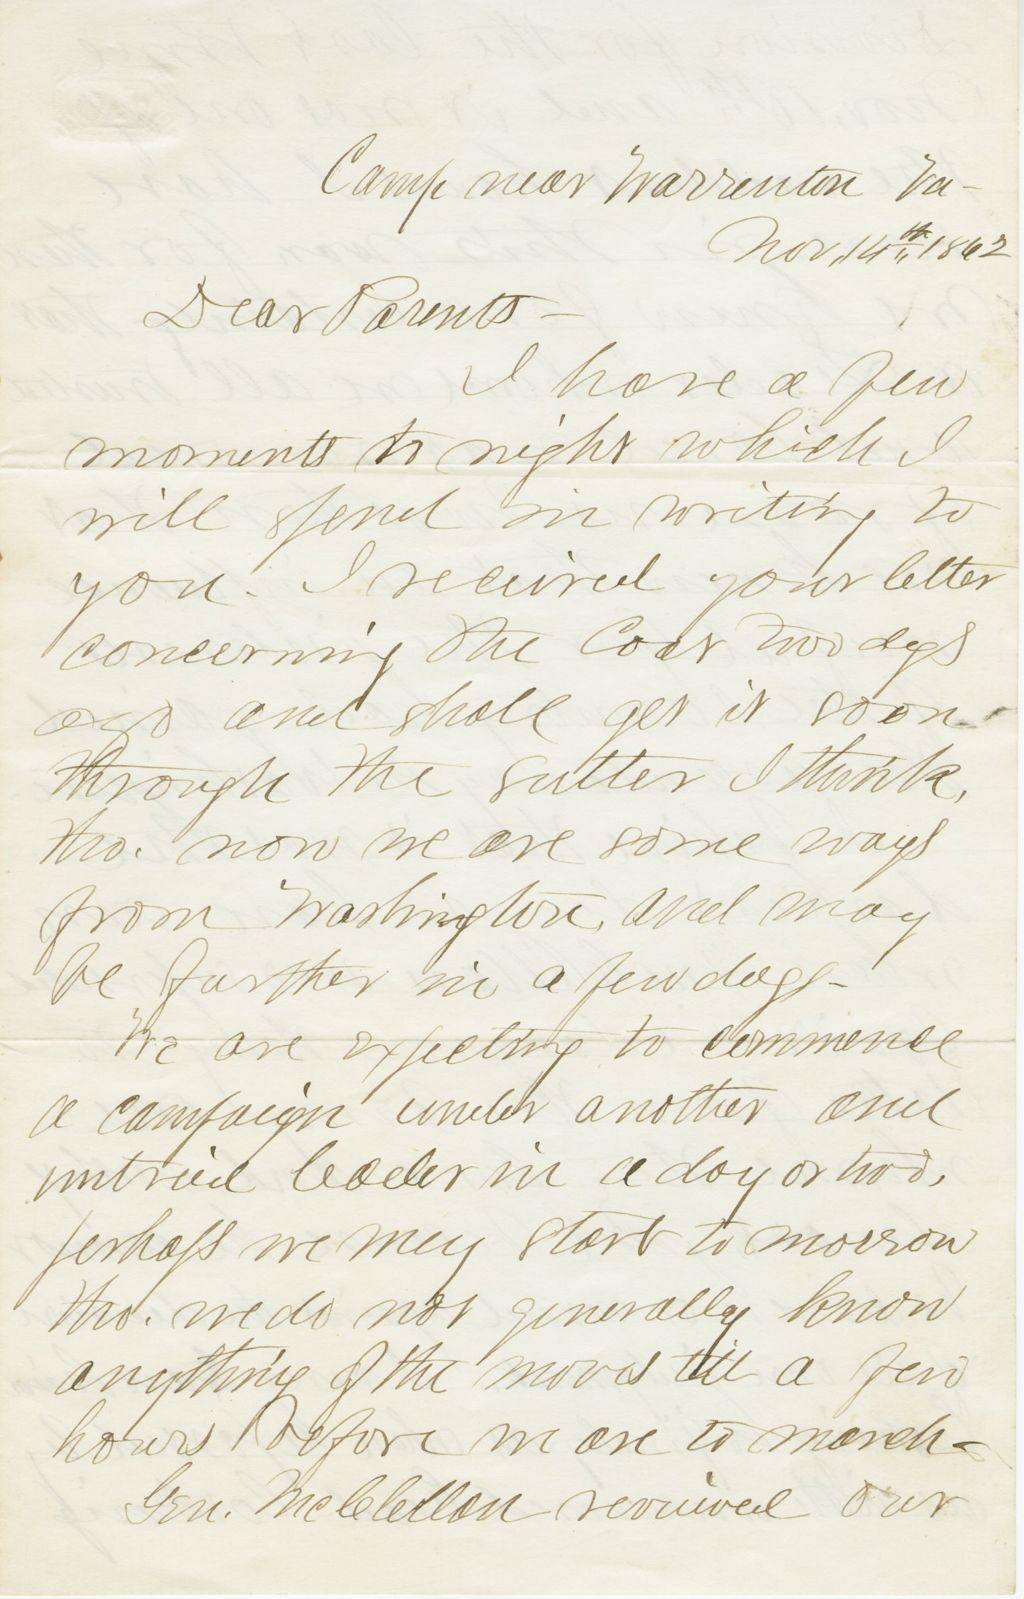 Camp near Warrenton Va-
Nov. 14th, 1862
Dear Parents -
I have a few
moments to night which I
will spend in writing to
you. I recieved your letter
concerning the Coat two days
ago and shall get it soon
through the sutter I think,
tho. now we are some ways
from Washington, and may
be further in a few days-
We are expecting to commence
a campaign under another and
untried leader in a day or two,
perhaps we may start to morrow
tho. we do not generally know
anything of the moves till a few
hours before we are to march-
Gen. McClellan reviewed our